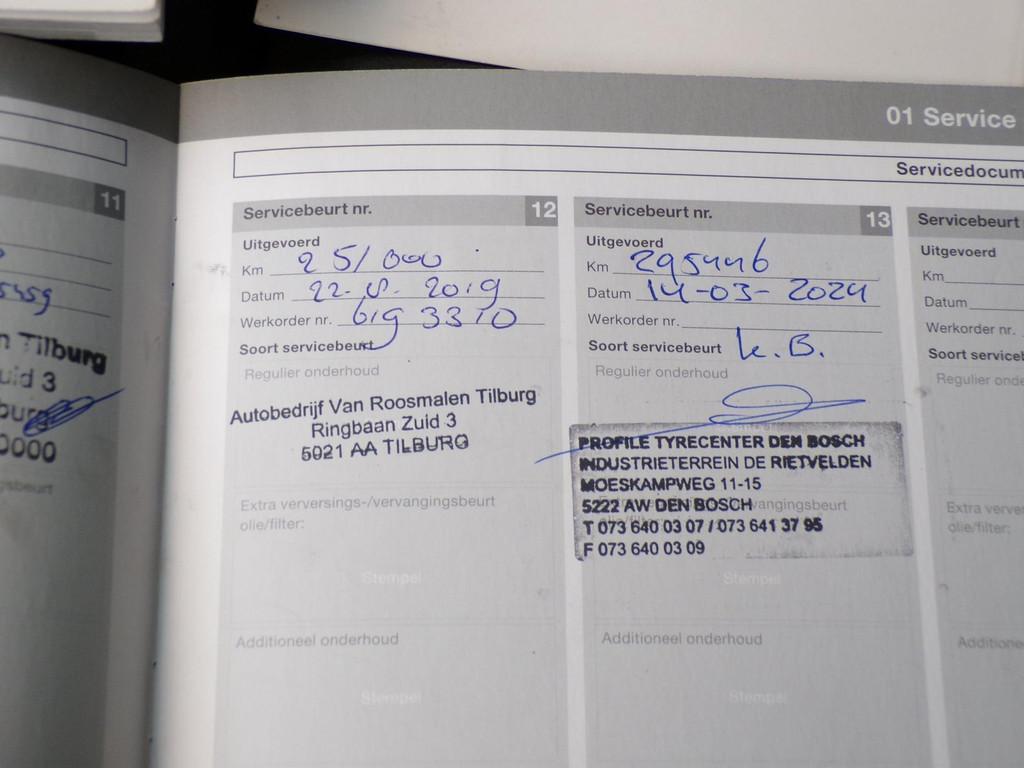 01 Service
Servicedocum
11
5459
n Tilburg
uid 3
burg
0000
gsbeurt
Servicebeurt nr. 12
Uitgevoerd
Km 251000
Datum 22-8-2019
Werkorder nr. 619 3310
Soort servicebeurt
Regulier onderhoud
Autobedrijf Van Roosmalen Tilburg
Ringbaan Zuid 3
5021 AA TILBURG
Extra verversings-/vervangingsbeurt
olie/filter:
Stempel
Additioneel onderhoud
Stempel
Servicebeurt nr. 13
Uitgevoerd
Km 295446
Datum 14-03-2024
Werkorder nr.
Soort servicebeurt k.B.
Regulier onderhoud
PROFILE TYRECENTER DEN BOSCH
INDUSTRIETERREIN DE RIETVELDEN
MOESKAMPWEG 11-15
5222 AW DEN BOSCH
T 073 640 03 07 / 073 641 37 95
F 073 640 03 09
vangingsbeurt
Stempel
Additioneel onderhoud
Stempel
Servicebeurt
Uitgevoerd
Km
Datum
Werkorder n
Soort serviceb
Regulier onder
Extra verver
olie/filter:
Additione